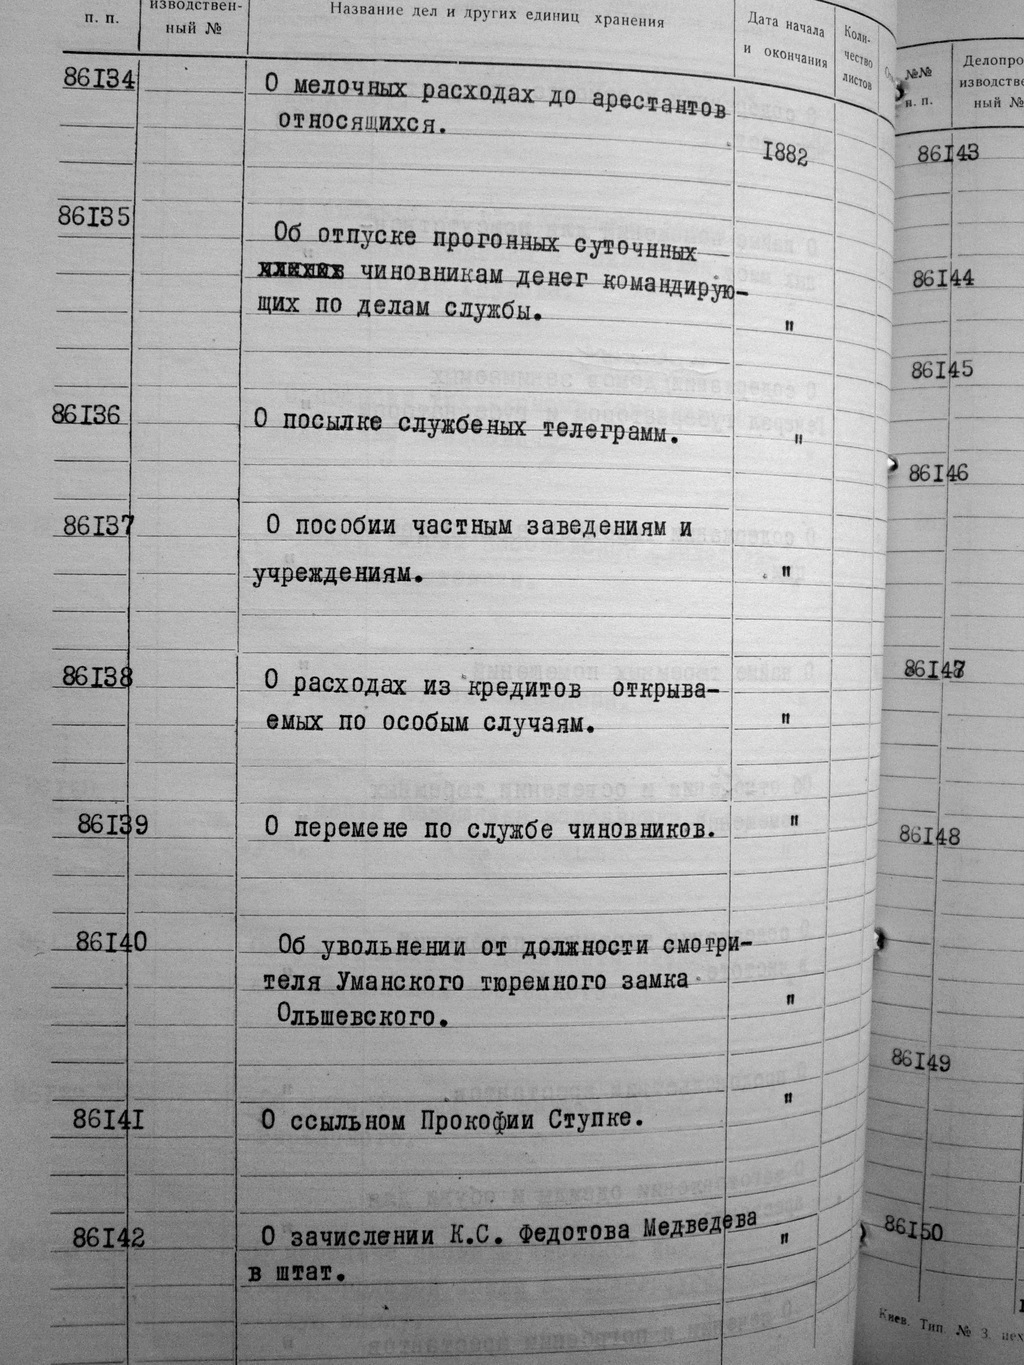 п. п.
изводствен-
ный №
Название дел и других единиц хранения
Дата начала
и окончания
Коли-
чество
листов
86I34
О мелочных расходах до арестантов
относящихся.
I882
86I35
Об отпуске прогонных суточнных
чиновникам денег командирую-
щих по делам службы.
"
86I36
О посылке службеных телеграмм.
"
86I37
О пособии частным заведениям и
учреждениям.
"
86I38
О расходах из кредитов открыва-
емых по особым случаям.
"
86I39
О перемене по службе чиновников.
"
86I40
Об увольнении от должности смотри-
теля Уманского тюремного замка
Ольшевского.
"
86I4I
О ссыльном Прокофии Ступке.
"
86I42
О зачислении К.С. Федотова Медведева
в штат.
"
№№
п. п.
Делопро
изводстве
ный №
86I43
86I44
86I45
86I46
86I47
86I48
86I49
86I50
Киев. Тип. № 3. цех